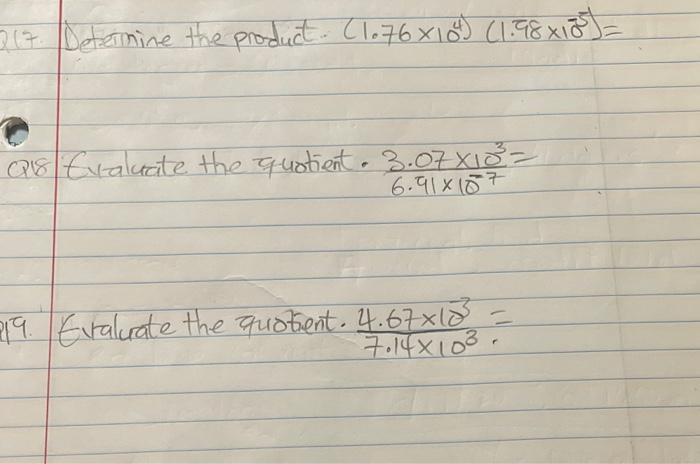 Q17. Determine the product. (1.76 × 10⁴) (1.98 × 10⁻⁵) =
Q18 Evaluate the quotient. 3.07 × 10³ =
6.91 × 10⁻⁷
Q19. Evaluate the quotient. 4.67 × 10⁻³ =
7.14 × 10³.